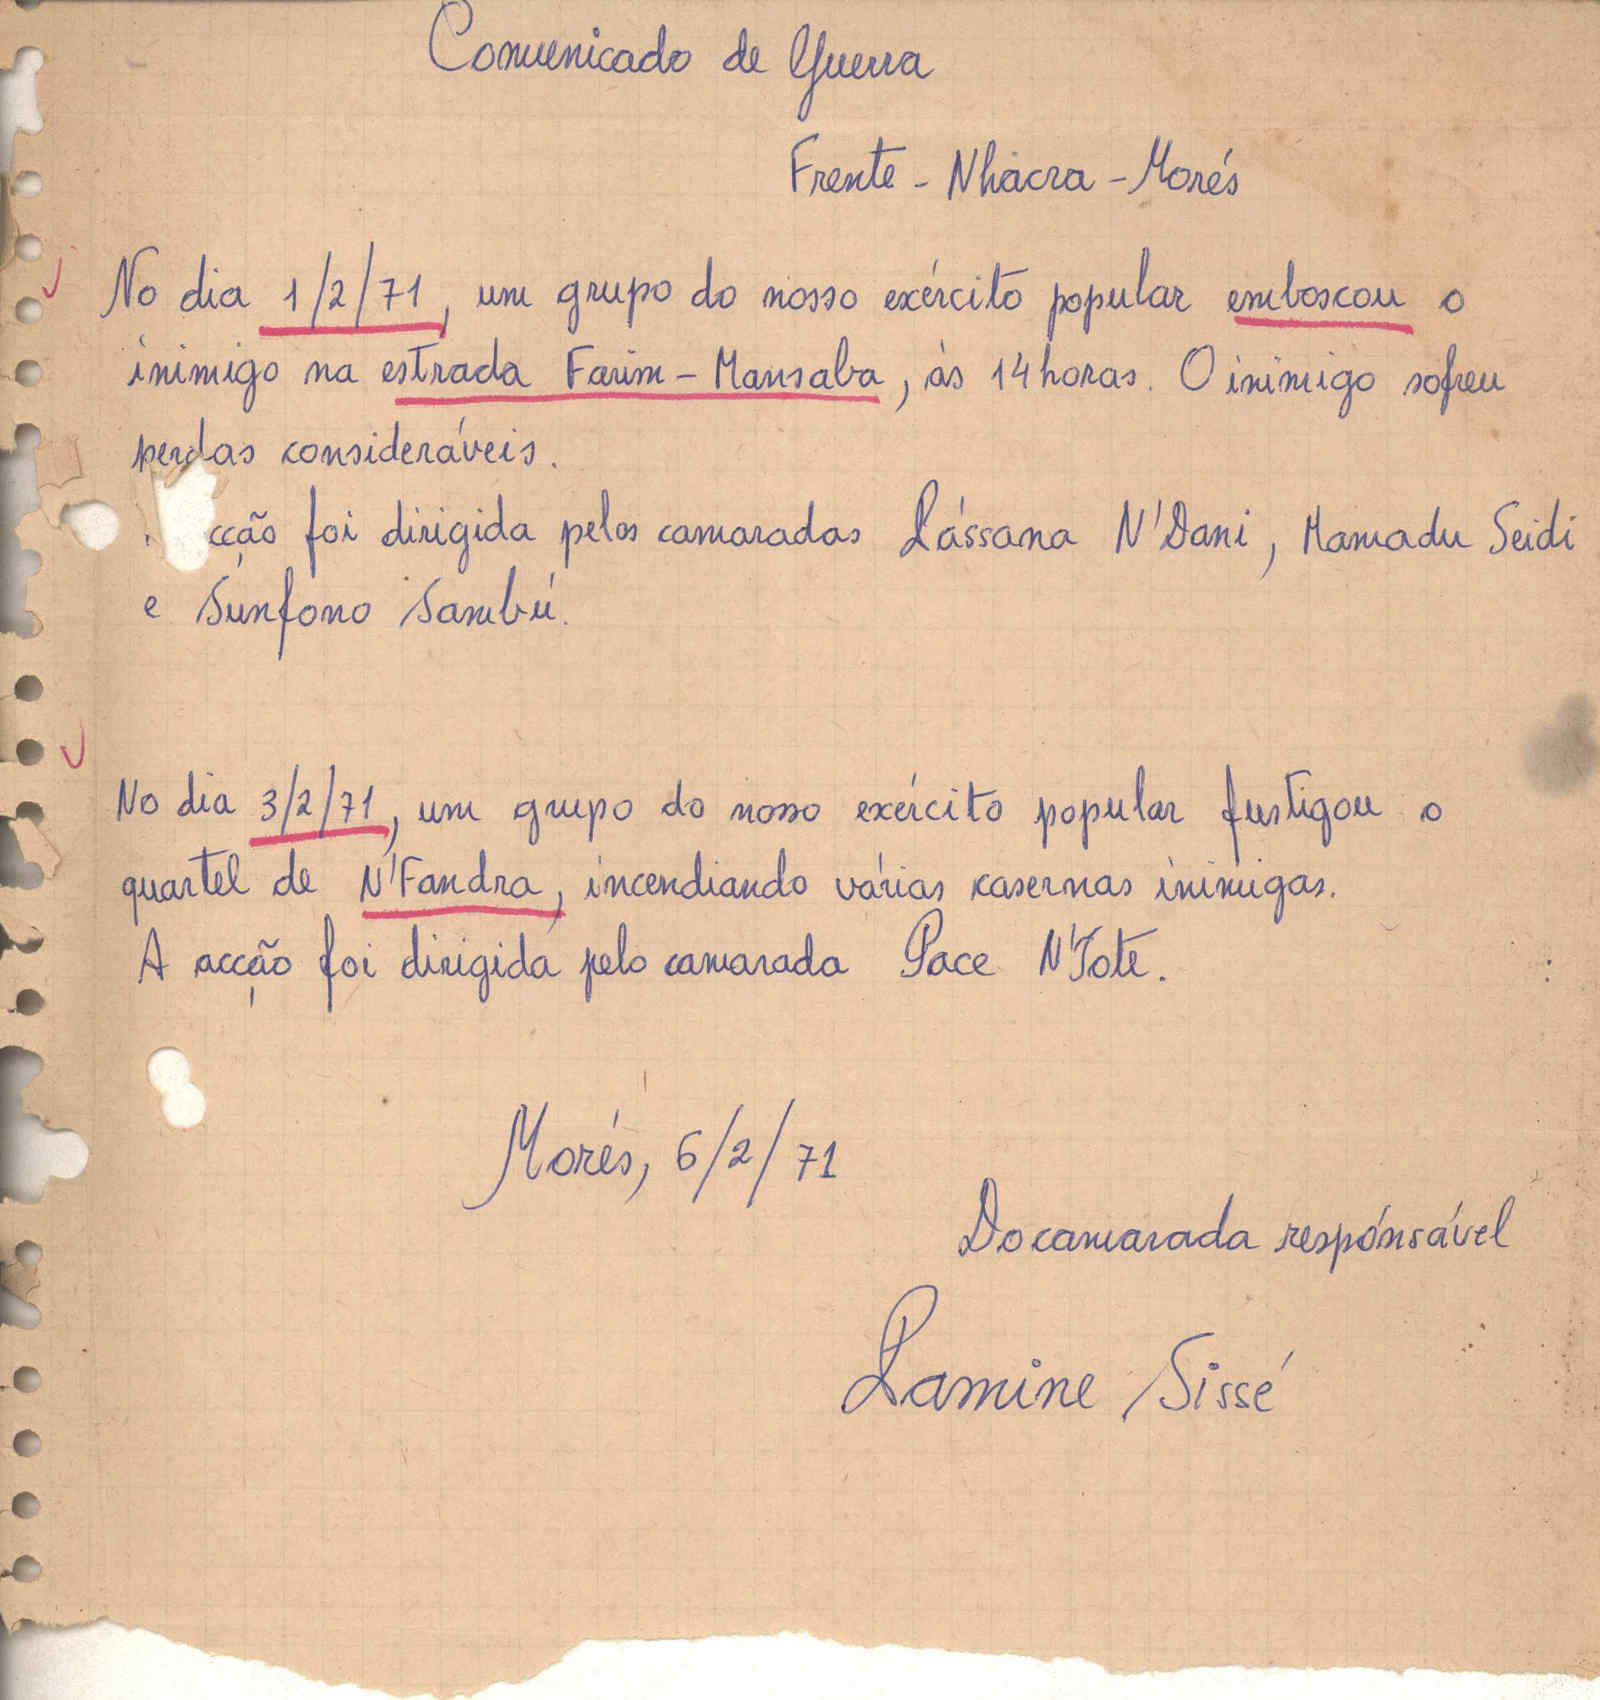 Comunicado de Guerra
Frente - Nhacra - Morés
No dia 1/2/71, um grupo do nosso exército popular emboscou o
inimigo na estrada Farim - Mansaba, às 14 horas. O inimigo sofreu
perdas consideráveis.
cção foi dirigida pelos camaradas Lássana N'Dani, Mamadu Seidi
e Sunfono Sambú.
No dia 3/2/71, um grupo do nosso exército popular fustigou o
quartel de N'Fandra, incendiando várias casernas inimigas.
A acção foi dirigida pelo camarada Pace N'Tote.
Morés, 6/2/71
Do camarada respónsável
Lamine Sissé